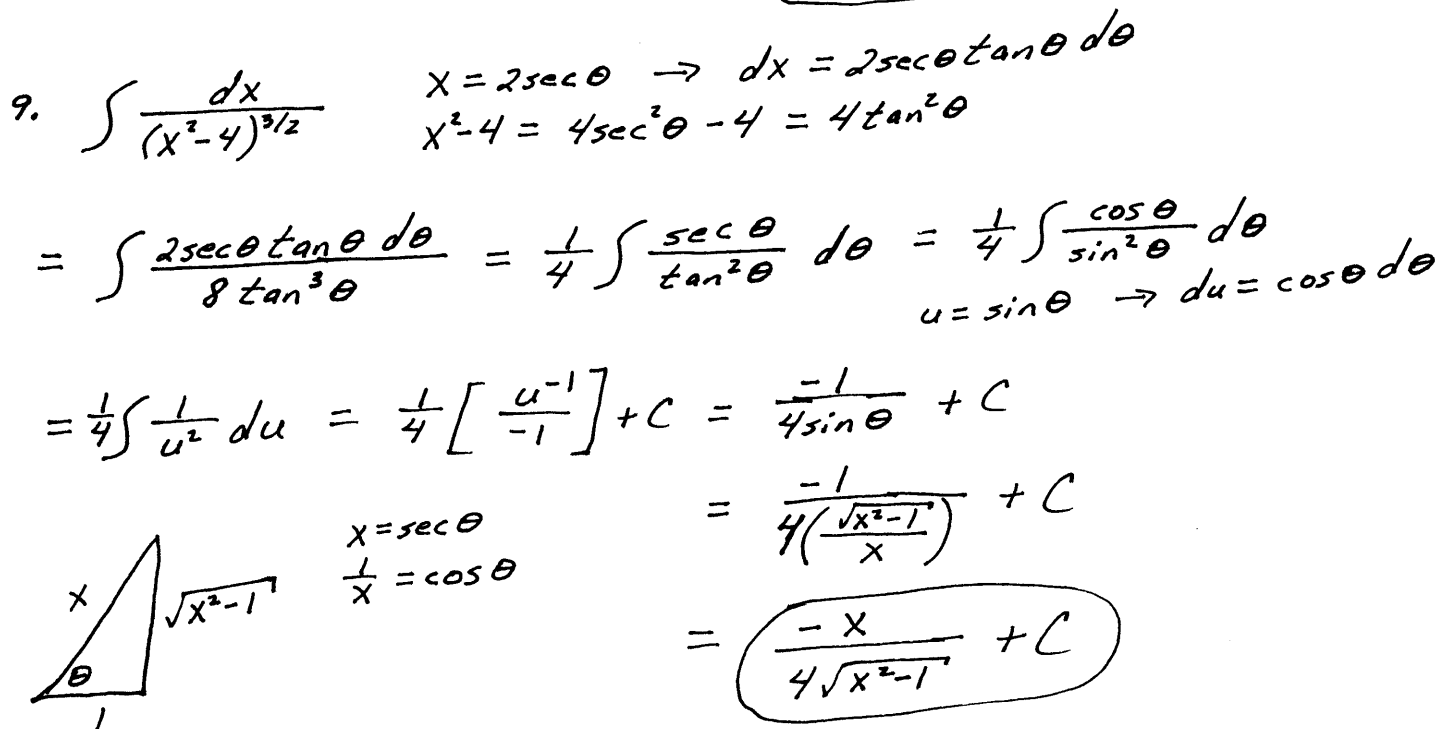 9. ∫ dx/(x²-4)^(3/2)   x = 2secθ → dx = 2secθtanθ dθ
x²-4 = 4sec²θ - 4 = 4tan²θ
= ∫ 2secθ tanθ dθ / 8tan³θ = 1/4 ∫ secθ/tan²θ dθ = 1/4 ∫ cosθ/sin²θ dθ
u = sinθ → du = cosθ dθ
= 1/4 ∫ 1/u² du = 1/4 [u⁻¹/-1] + C = -1/(4sinθ) + C
= -1/(4(√(x²-1)/x)) + C
x = secθ
1/x = cosθ
x
√(x²-1)
θ
1
= -x/(4√(x²-1)) + C